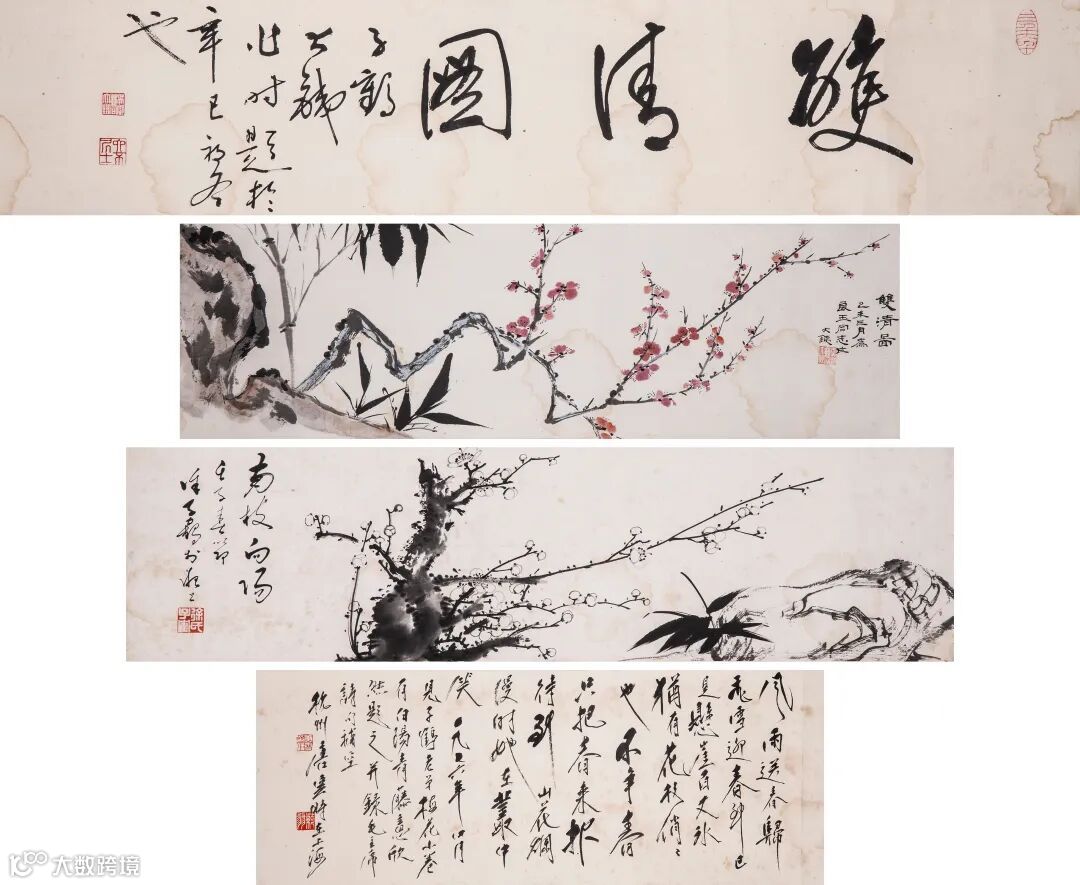 雙清圖
子鶴
大鐵
時題於
辛巳初冬
也
雙清圖
己未三月為
良玉同志
大鐵
南枝向陽
壬子春節
徐子鶴於
徐氏子鶴
風雨送春歸
飛雪迎春到已
是懸崖百丈冰
猶有花枝俏〻
也不爭春
只把春來報
待到山花爛
熳時她在叢中
笑 一九七六年四月
見子鶴老弟梅花小卷
有白陽青藤意欣
然題之并錄毛主席
詩句補空
杭州唐雲時在上海
大数跨境